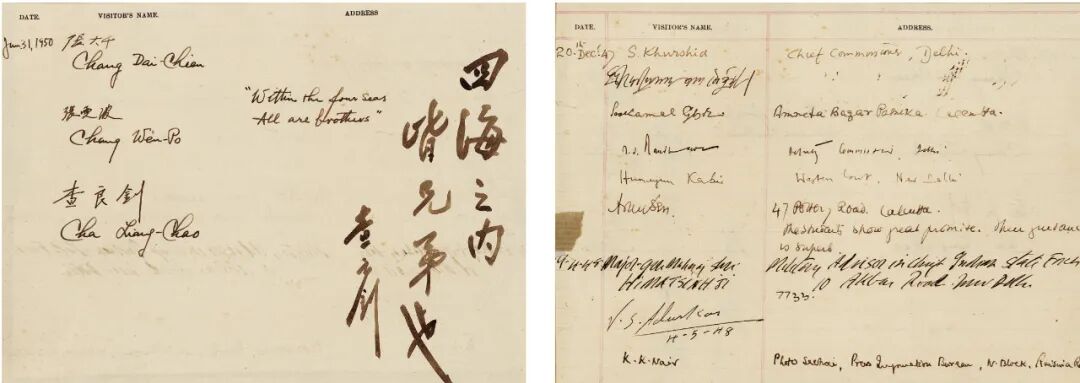 DATE. VISITOR'S NAME. ADDRESS
Jan 31, 1950 張大千
Chang Dai-Chien
張雯波
Chang Wên-Po
查良釗
Cha Liang-Chao
"Within the four seas
All are brothers"
四海之内
皆兄弟也
查良釗
DATE. VISITOR'S NAME. ADDRESS.
20th Dec. 47 S. Khurshid Chief Commissioner, Delhi.
Amrita Bazar Patrika Calcutta.
Deputy Commissioner, Delhi
Humayun Kabir Western Court, New Delhi
47 Pottery Road. Calcutta.
The students show great promise. Their guidance
is superb.
Major-Gen Maharaj Shri Military Adviser in Chief Indian State Forces
HIMATSINHJI 10 Akbar Road New Delhi
7733.
4-5-48
K. K. Nair Photo Section, Press Information Bureau, N. Block,